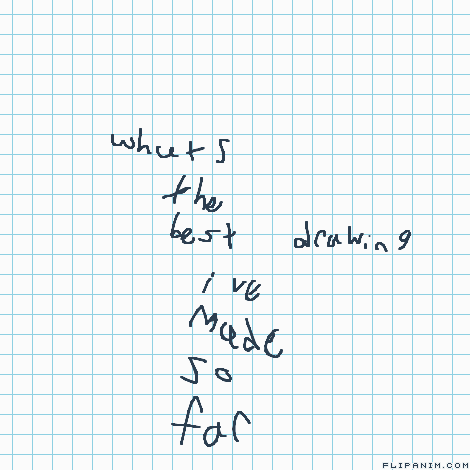 whats
the
best drawing
i ve
made
so
far
FLIPANIM.COM